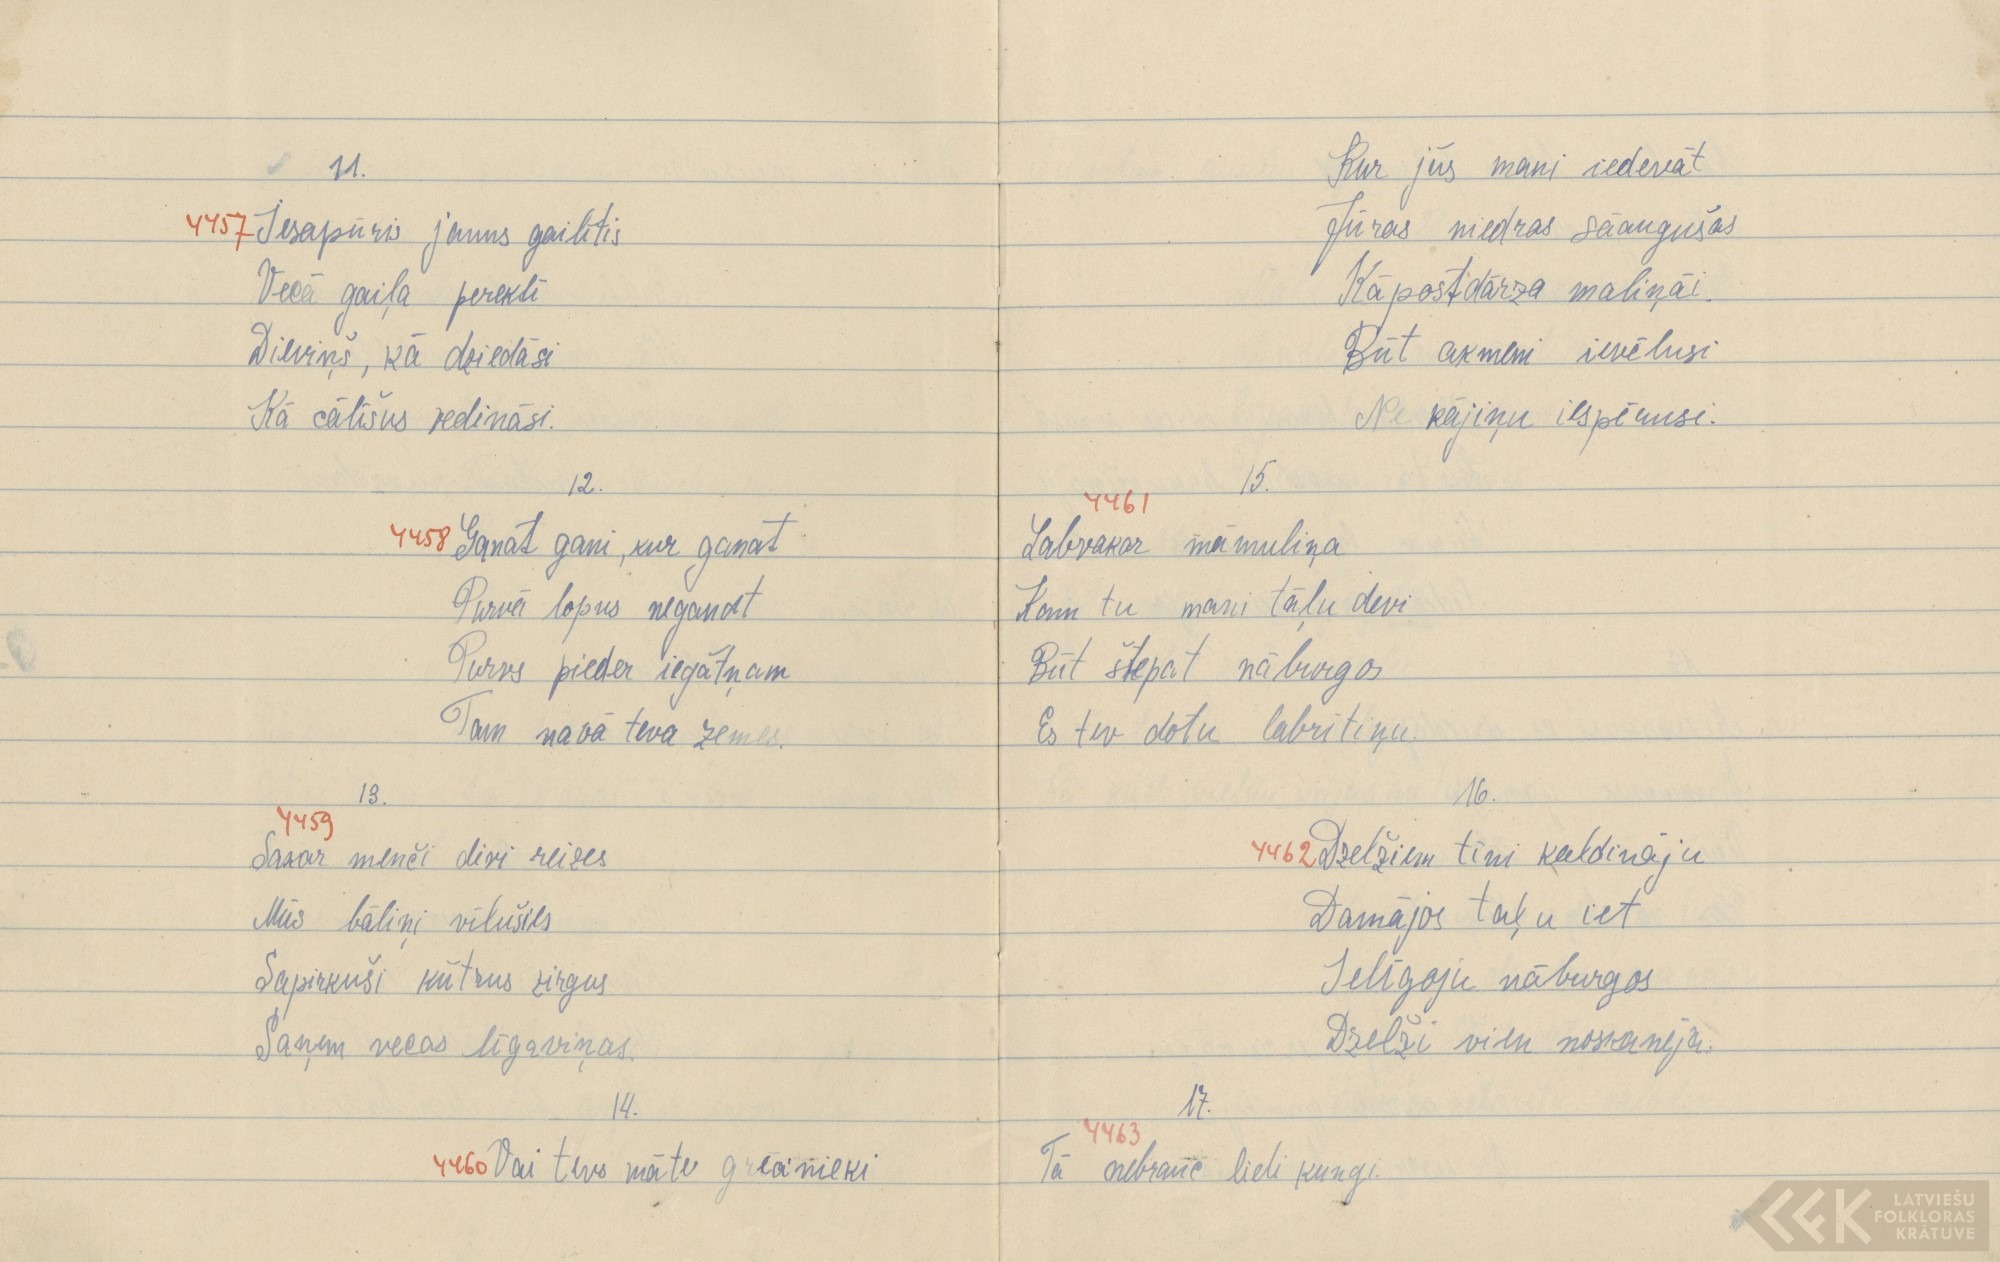 11.
4457 Iesapūris jauns gailītis
Vecā gaiļa perektī
Dieviņš, kā dziedāsi
Kā cālīšus vedināsi.
12.
4458 Ganat gani, kur ganat
Purvā lopus neganat
Purvs pieder iegātņam
Tam navā teva zemes.
13.
4459
Sakar menči divi reizes
Mūs bāliņi vīlušies
Sapirkuši kūtrus zirgus
Saņem vecas līgaviņas.
14.
4460 Vai tevs māte grēānieki
Kur jūs mani iedevāt
Jūras niedras sāaugušas
Kāpostdārza maliņāi.
Būt akmeni ievēlusi
Ne kājiņu iespērusi.
15.
4461
Labvakar māmuliņa
Kam tu mani tāļu devi
Būt štepat nāburgos
Es tev dotu labrītiņu.
16.
4462 Dzelžiem tīni kaldināju
Damājos taļu iet
Ielīgoju nāburgos
Dzelži vien noskanēja.
17.
4463
Tā nebrauc lieli kungi.
LATVIEŠU
FOLKLORAS
KRĀTUVE